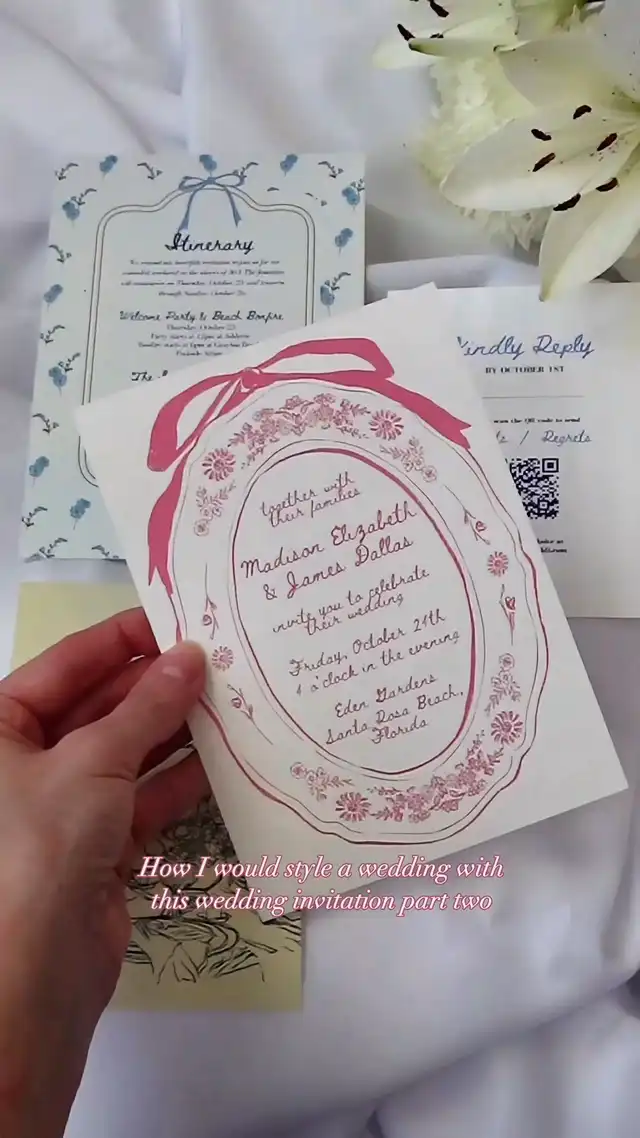 Itinerary
Welcome Party & Beach Bonfire
Thursday, October 23
Kindly Reply
BY OCTOBER 1ST
scan the QR code to send
/ Regrets
together with
their families
Madison Elizabeth
& James Dallas
invite you to celebrate
their wedding
Friday, October 24th
4 o'clock in the evening
Eden Gardens
Santa Rosa Beach,
Florida
How I would style a wedding with
this wedding invitation part two